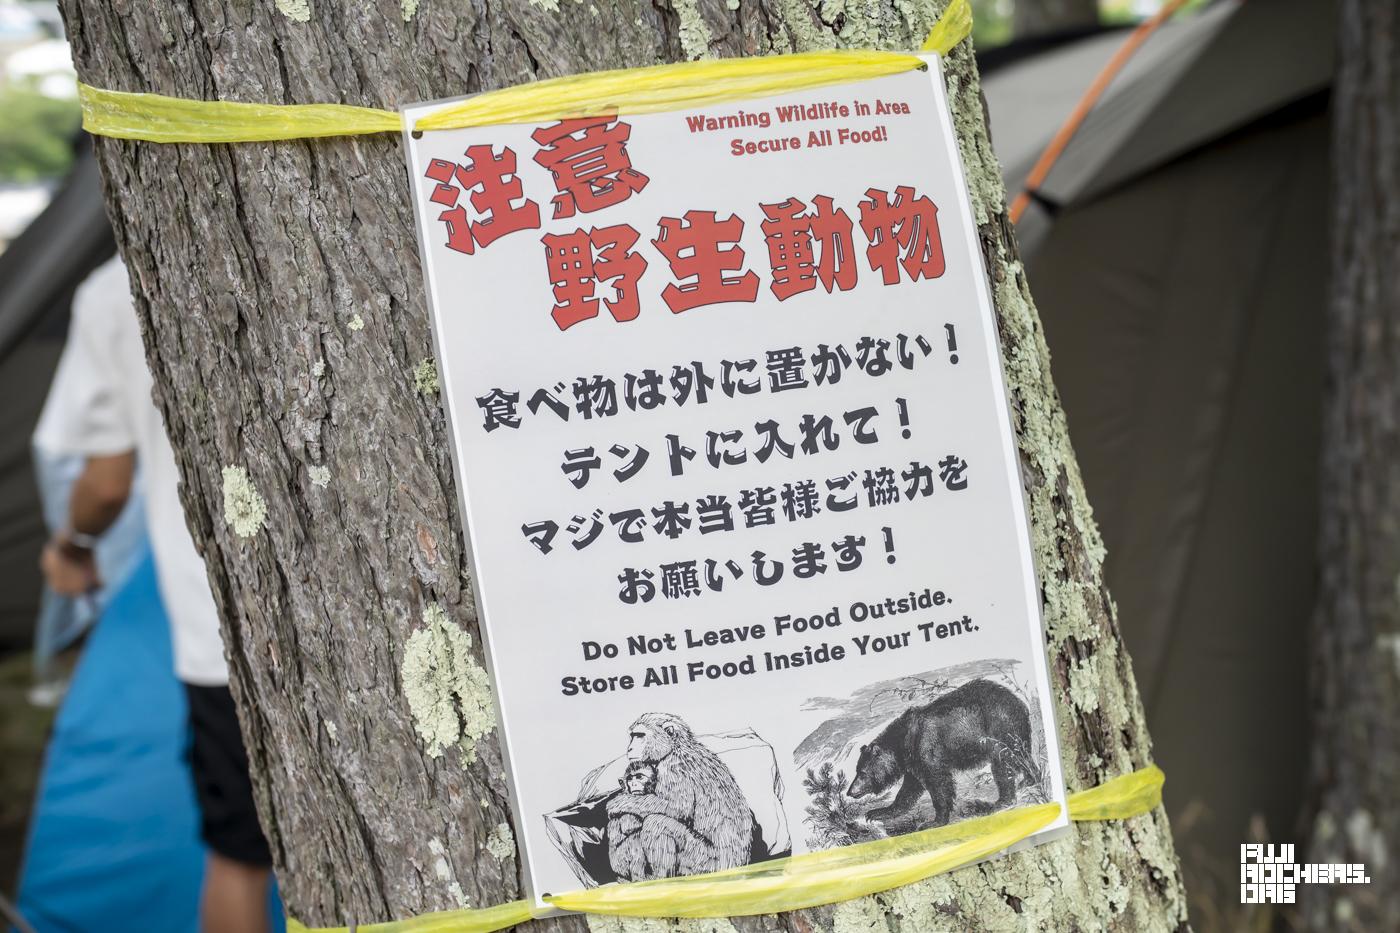 注意
Warning Wildlife in Area
Secure All Food!
野生動物
食べ物は外に置かない！
テントに入れて！
マジで本当皆様ご協力を
お願いします！
Do Not Leave Food Outside.
Store All Food Inside Your Tent.
FUJI
ROCKERS.
ORG